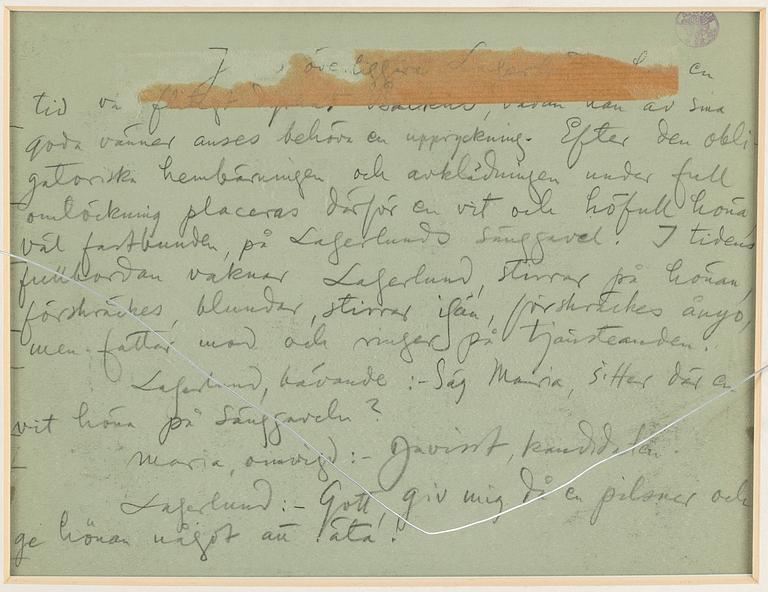 J överliggare Lagerl en
tid va flitigt Bacchus, vadan han av sina
goda vänner anses behöva en uppryckning. Efter den obli-
gatoriska hembärningen och avklädningen under full
omlöckning placeras därför en vit och höfull höna,
väl fastbunden, på Lagerlunds sänggavel. I tidens
fullbordan vaknar Lagerlund, stirrar på hönan,
förskräckes, blundar, stirrar igen, förskräckes ånyo,
men fattar mod och ringer på tjänsteanden.
Lagerlund, bävande :- Säg Maria, sitter där en
vit höna på sänggaveln?
Maria, omvigd :- Javisst, kandidaten.
Lagerlund :- Gott, giv mig då en pilsner och
ge hönan något att äta!